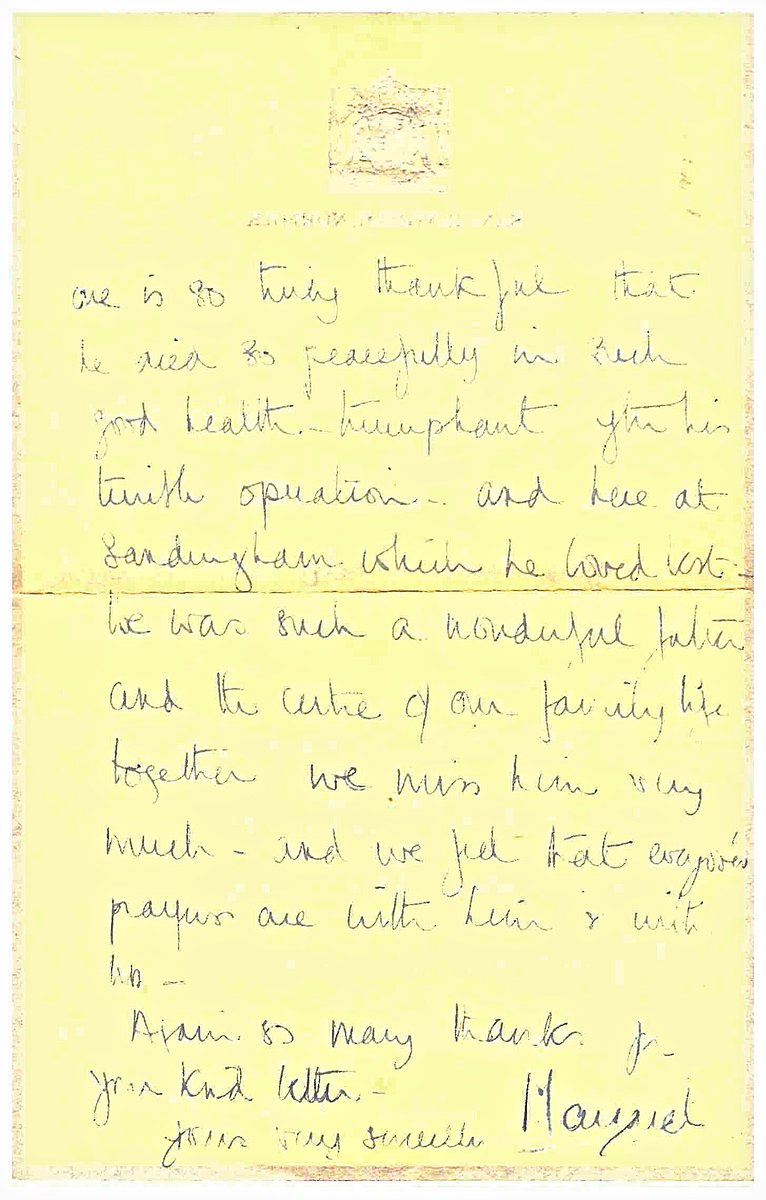 one is so truly thankful that
he died so peacefully in such
good health - triumphant after his
terrible operation - and here at
Sandringham which he loved best -
he was such a wonderful father
and the centre of our family life
together we miss him very
much - and we feel that everyone's
prayers are with him & with
us -
Again so many thanks for
your kind letter -
yours very sincerely Margaret